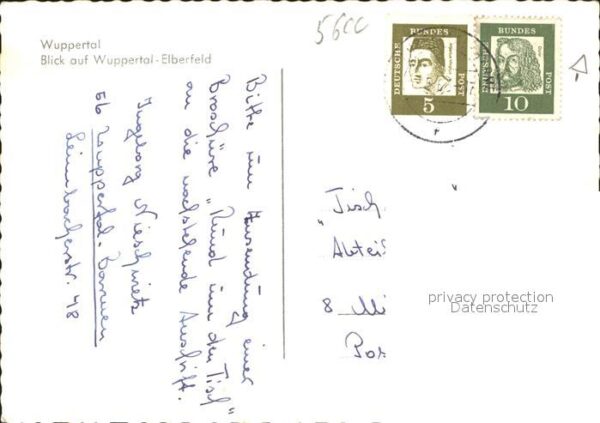 Wuppertal
Blick auf Wuppertal-Elberfeld
56CC
DEUTSCHE BUNDES POST
5
DEUTSCHE BUNDES POST
10
Bitte um Zusendung einer
Broschüre „Rund um den Tisch"
an die nachstehende Anschrift.
Ingeborg Nieschwietz
56 Wuppertal-Barmen
Leimbacherstr. 48
„Tisch
Abtei
8 Mü
Pos
privacy protection
Datenschutz